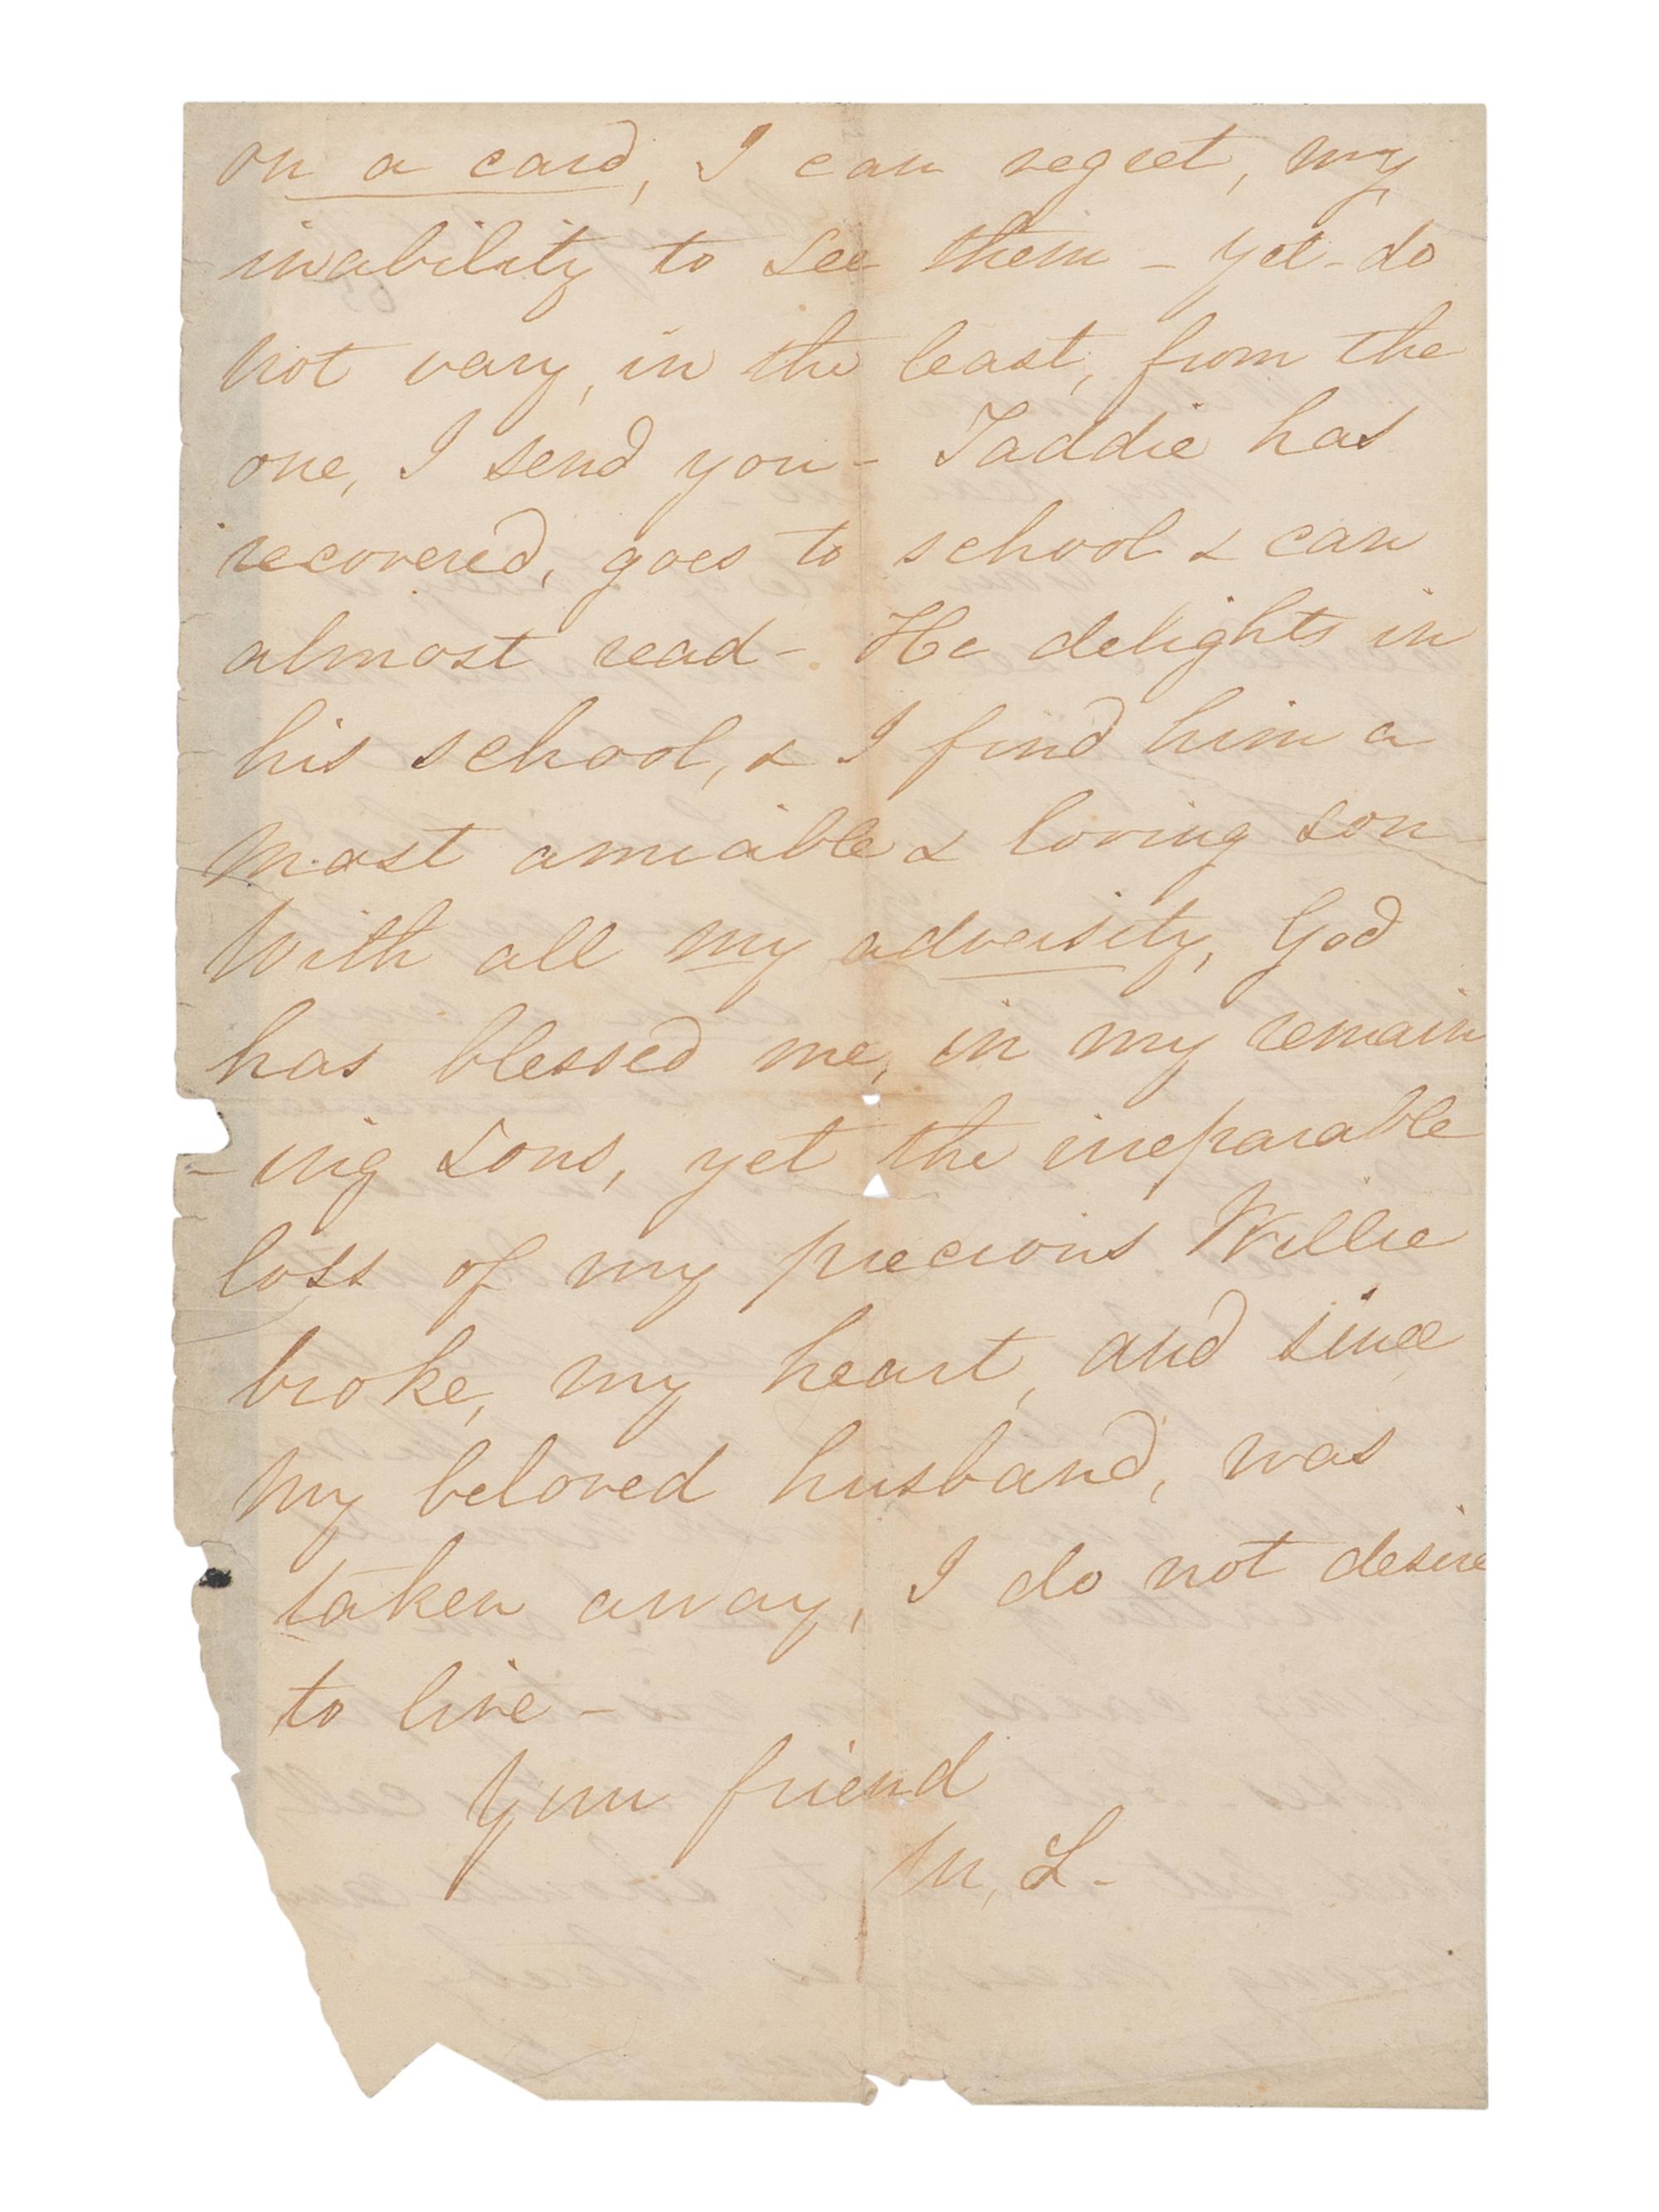 on a card, I can regret, my
inability to see them - yet - do
not vary, in the least, from the
one, I send you - Taddie has
recovered, goes to school & can
almost read - He delights in
his school, & I find him a
most amiable & loving son -
With all my adversity, God
has blessed me, in my remain
-ing sons, yet the ireparable
loss of my precious Willie
broke, my heart, and since
my beloved husband, was
taken away, I do not desire
to live -
Your friend
M. L -